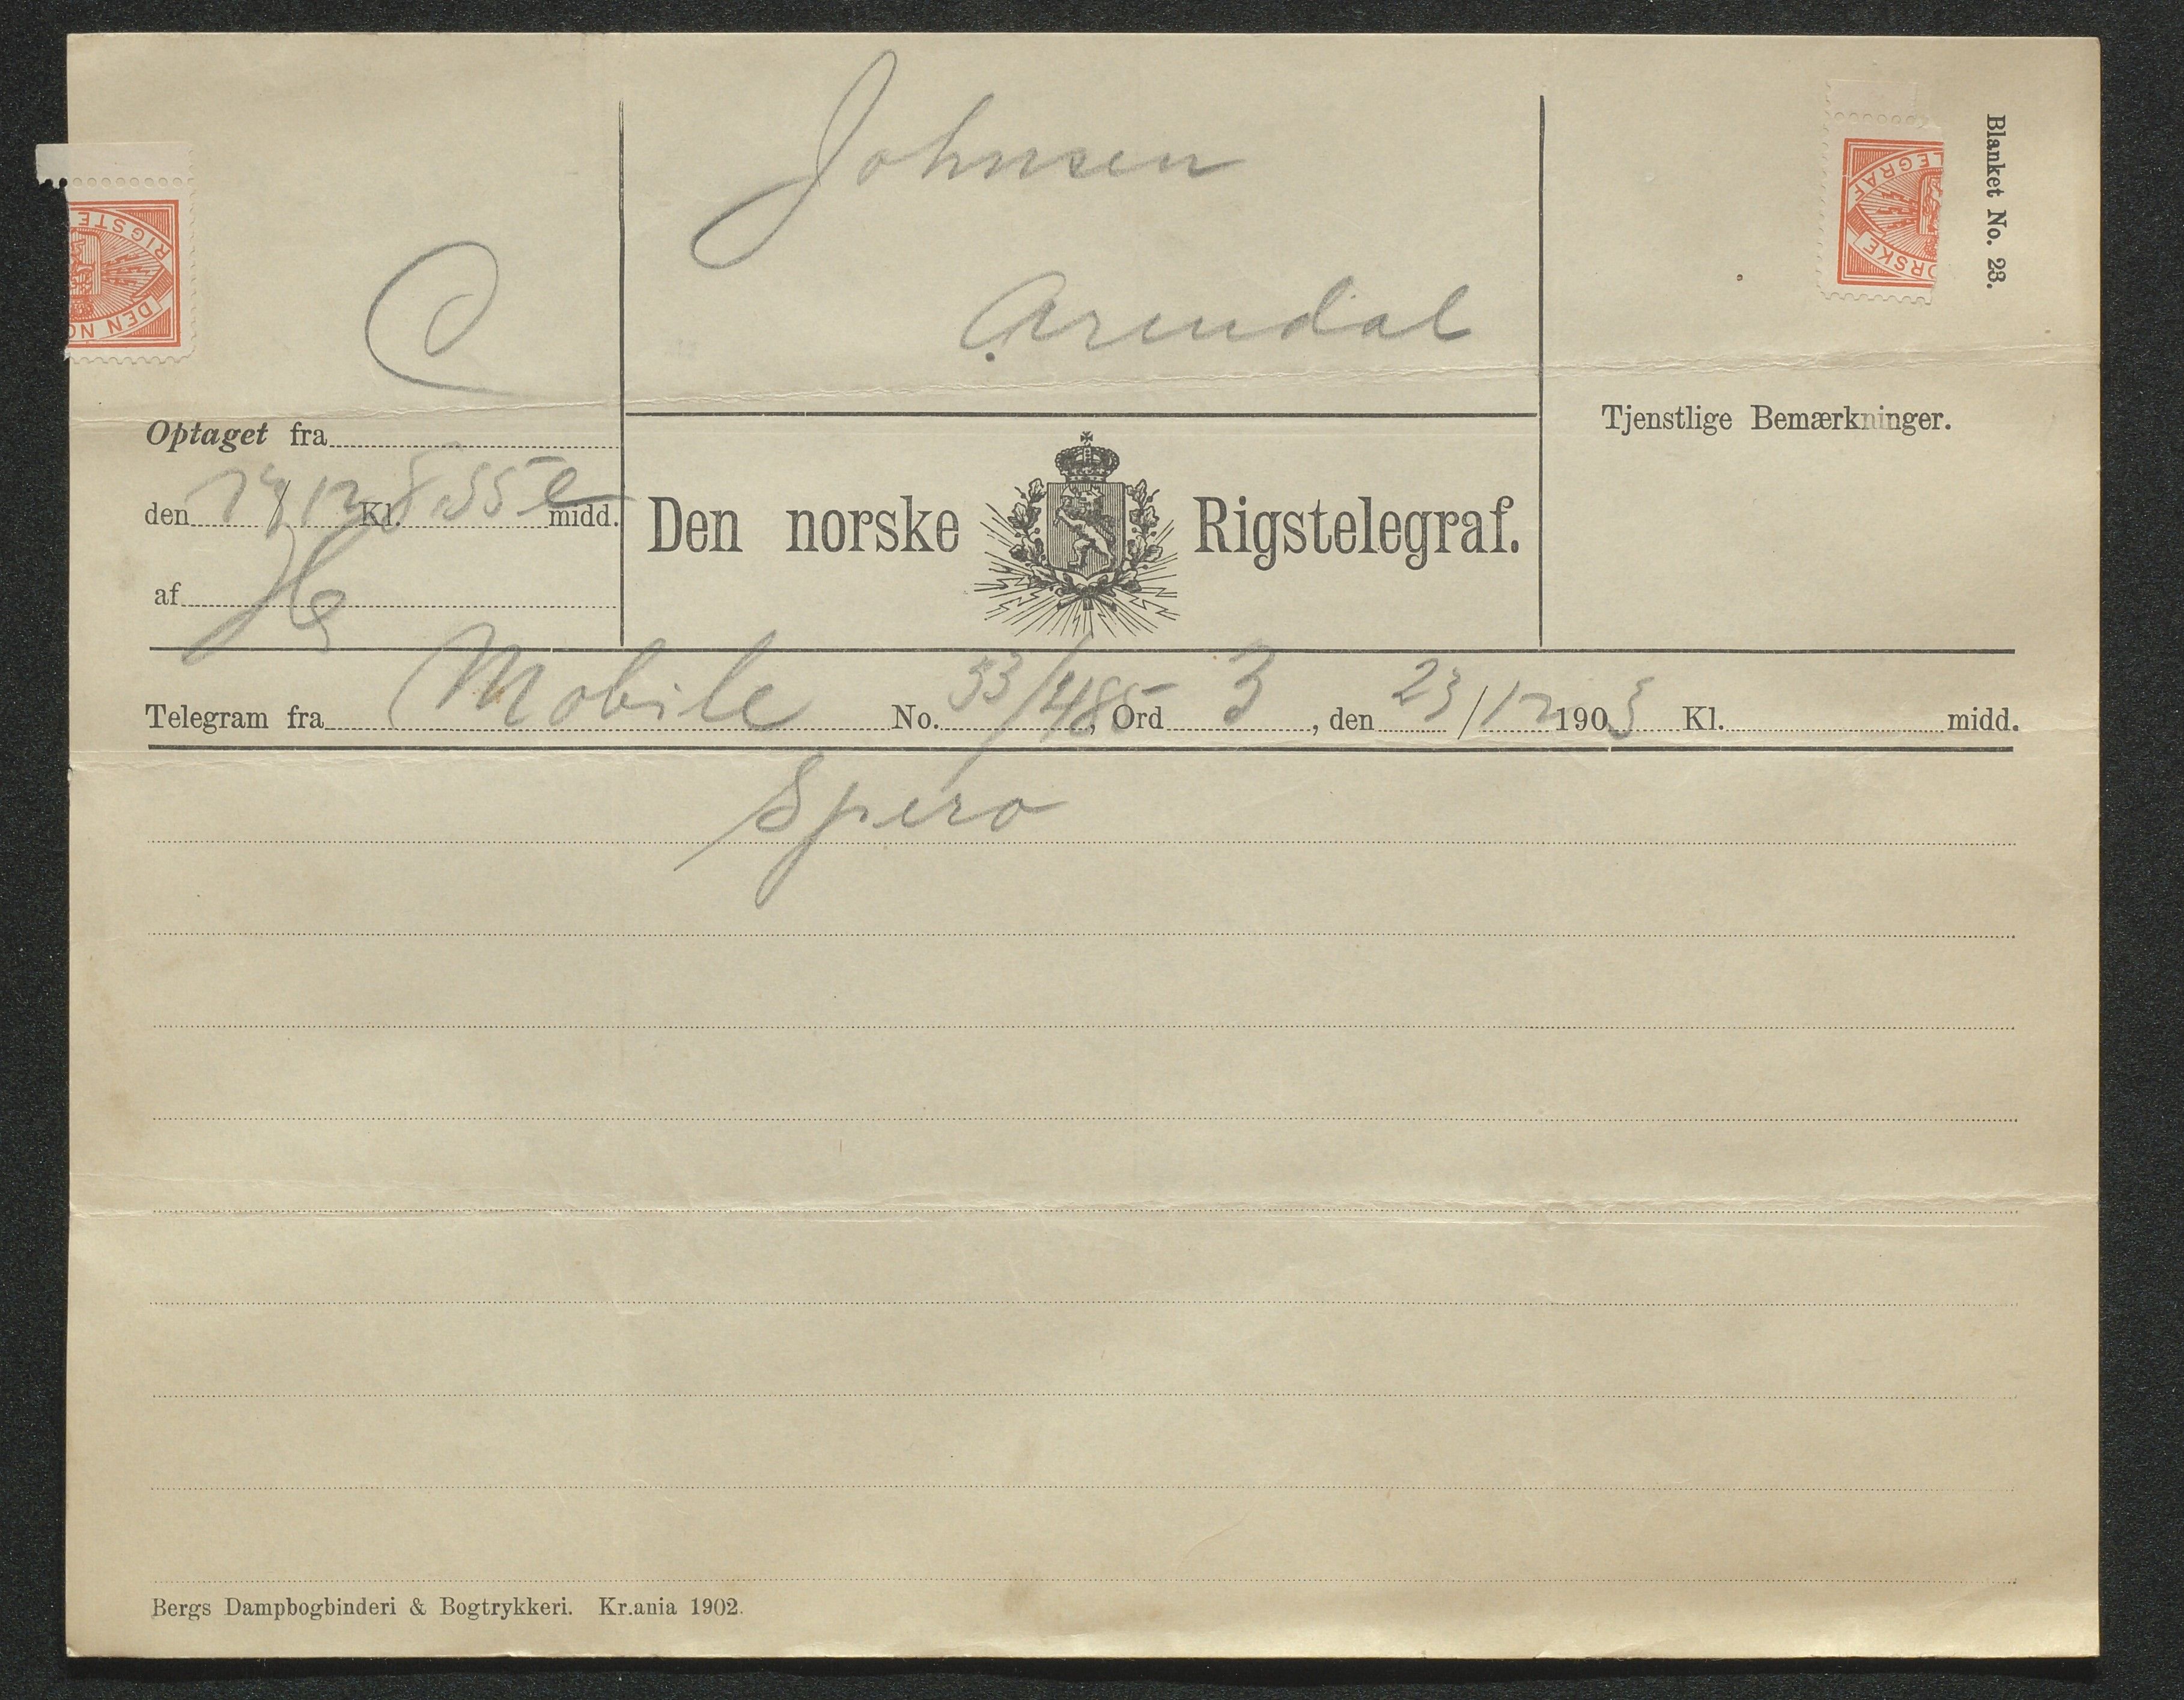 Johnsen
Arendal
Blanket No. 23.
RIGSTE
DEN NO
LEGRAF
ORSKE
C
Optaget fra
den 24/12 Kl. 8.55 e midd.
af
Den norske Rigstelegraf.
Tjenstlige Bemærkninger.
Telegram fra Mobile No. 53/485, Ord 3, den 23/12 1903 Kl. midd.
Spero
Bergs Dampbogbinderi & Bogtrykkeri. Kr.ania 1902.